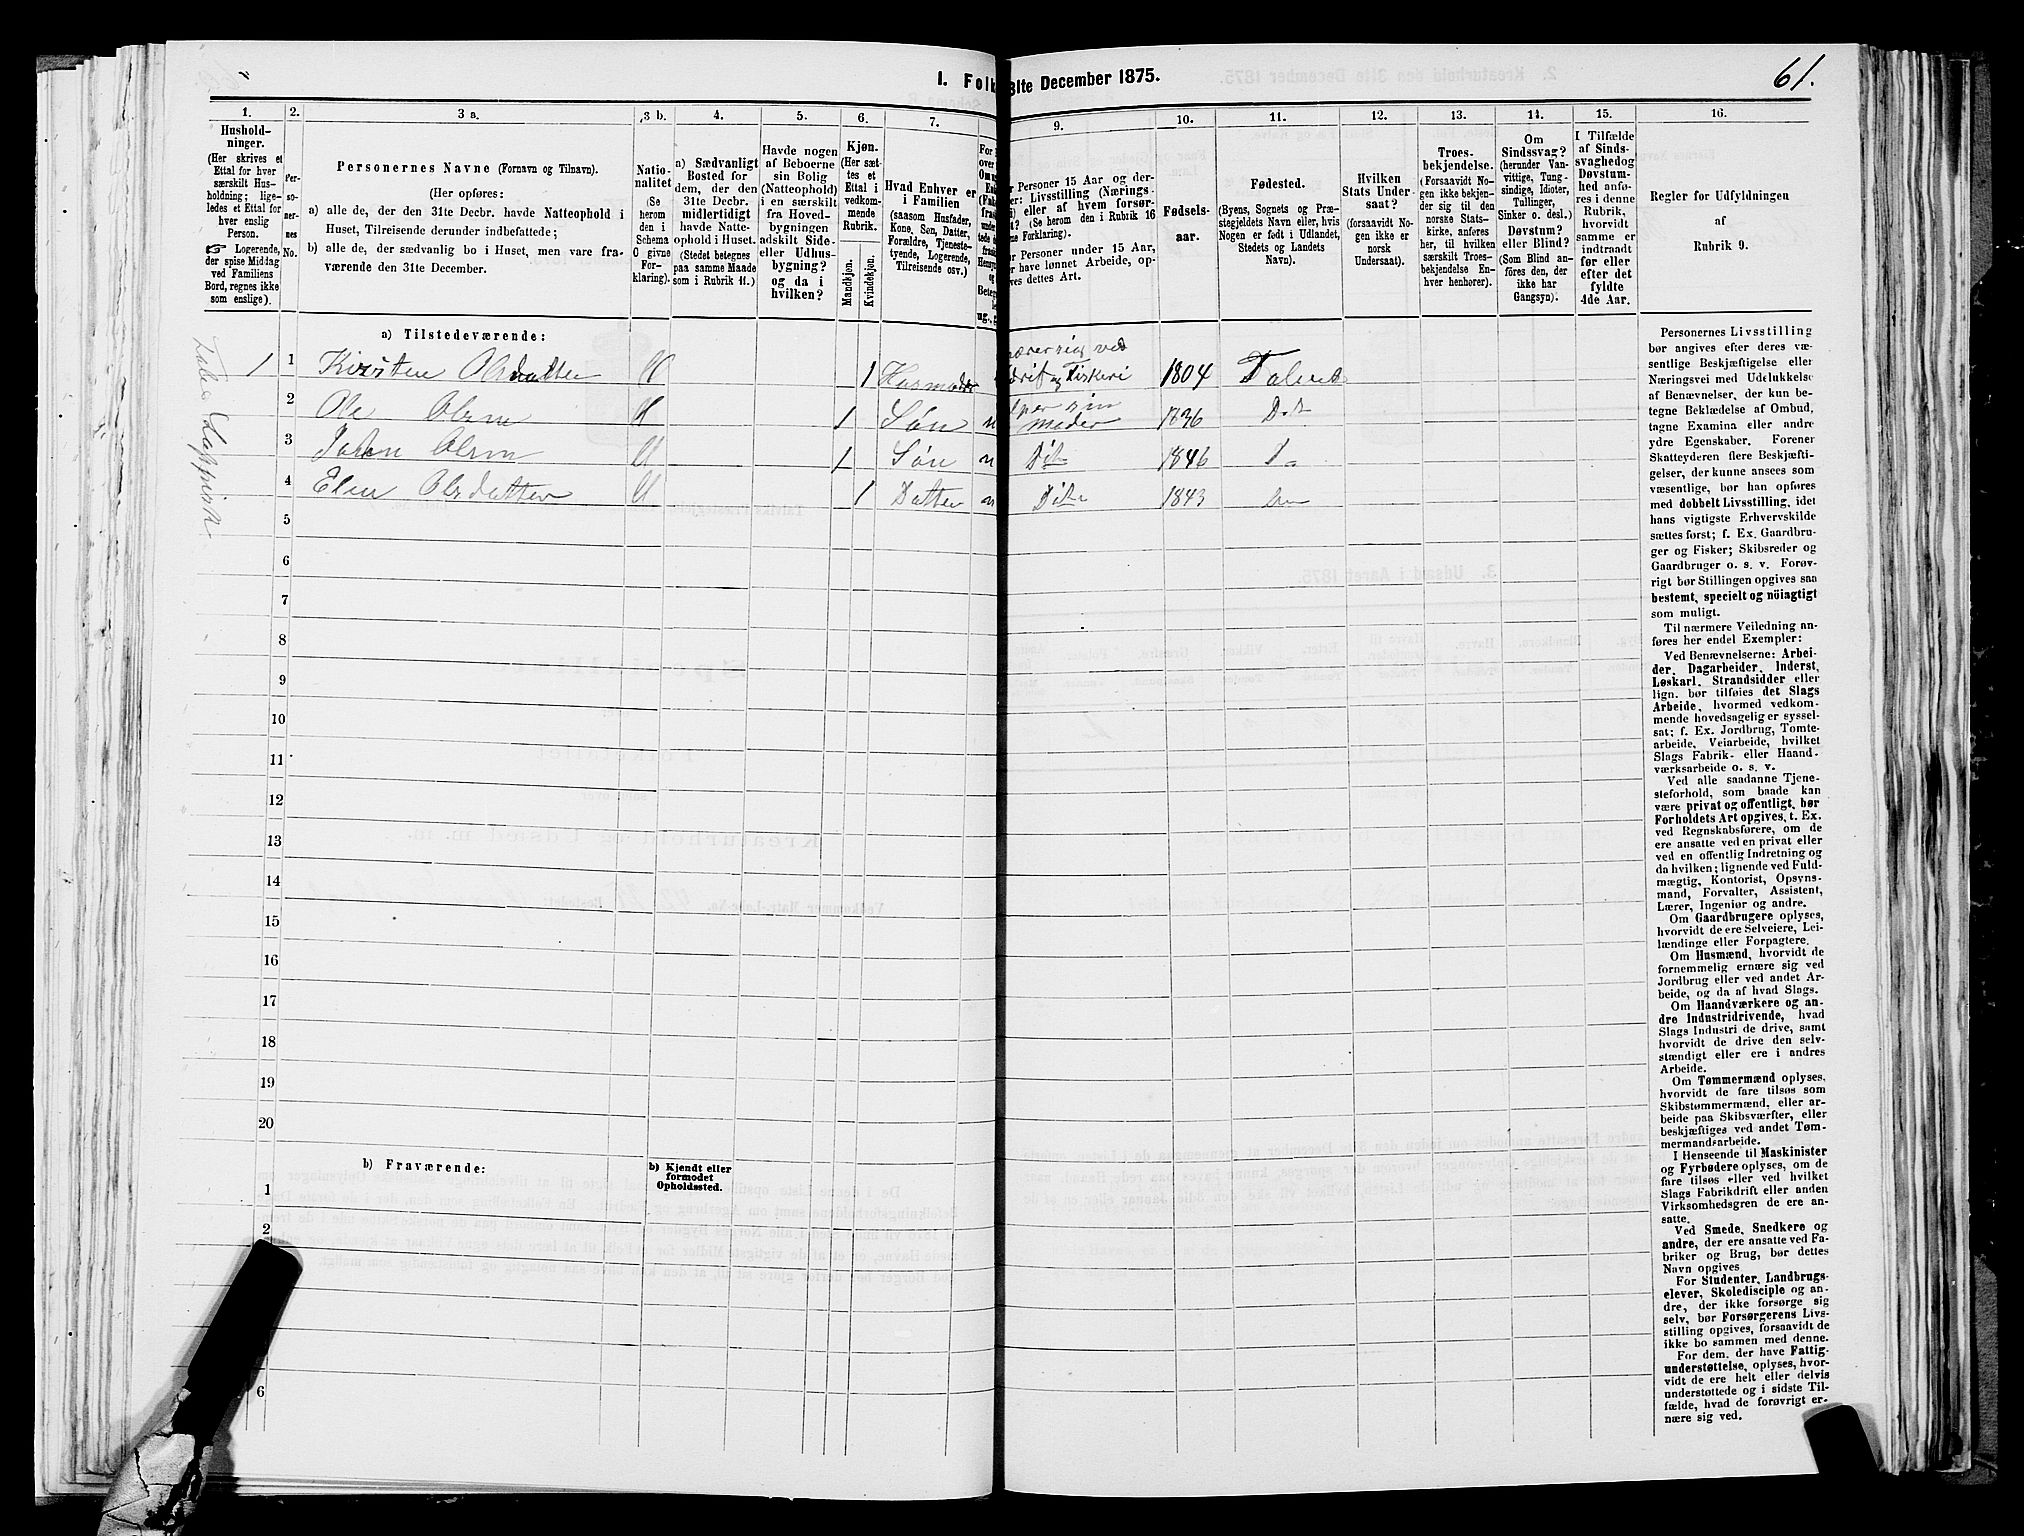 61.
I. Folk
31te December 1875.
1.
2.
3 a.
3 b.
4.
5.
6.
7.
9.
10.
11.
12.
13.
14.
15.
16.
Hushold-
ninger.
(Her skrives et
Ettal for hver
særskilt Hus-
holdning; lige-
ledes et Ettal for
hver enslig
Person.
☞ Logerende,
der spise Middag
ved Familiens
Bord, regnes ikke
som enslige).
Per-
so-
ner-
nes
No.
Personernes Navne (Fornavn og Tilnavn).
(Her opføres:
a) alle de, der den 31te Decbr. havde Natteophold i
Huset, Tilreisende derunder indbefattede;
b) alle de, der sædvanlig bo i Huset, men vare fra-
værende den 31te December.
Natio-
nalitet
(Se
herom
den i
Schema
O givne
For-
klaring).
a) Sædvanligt
Bosted for
dem, der den
31te Decbr.
midlertidigt
havde Natte-
ophold i Huset.
(Stedet betegnes
paa samme Maade
som i Rubrik 11.)
Havde nogen
af Beboerne
sin Bolig
(Natteophold)
i en særskilt
fra Hoved-
bygningen
adskilt Side-
eller Udhus-
bygning?
og da i
hvilken?
Kjøn.
(Her sæt-
tes et
Ettal i
vedkom-
mende
Rubrik.
Mandkjøn.
Kvindekjøn.
Hvad Enhver er
i Familien
(saasom Husfader,
Kone, Søn, Datter,
Forældre, Tjeneste-
tyende, Logerende,
Tilreisende osv.)
r Personer 15 Aar og der-
er: Livsstilling (Nærings-
eller af hvem forsør-
? (Se herom den i Rubrik 16
ne Forklaring).
r Personer under 15 Aar,
r have lønnet Arbeide, op-
ves dettes Art.
Fødsels-
aar.
Fødested.
(Byens, Sognets og Præ-
stegjeldets Navn eller, hvis
Nogen er født i Udlandet,
Stedets og Landets
Navn).
Hvilken
Stats Under-
saat?
(forsaavidt No-
gen ikke er
norsk
Undersaat).
Troes-
bekjendelse.
(Forsaavidt No-
gen ikke bekjen-
der sig til den
norske Stats-
kirke, anføres
her, til hvilken
særskilt Troes-
bekjendelse En-
hver henhører).
Om
Sindssvag?
(herunder Van-
vittige, Tung-
sindige, Idioter,
Tullinger,
Sinker o. desl.)
Døvstum?
eller Blind?
(Som Blind an-
føres den, der
ikke har
Gangsyn).
I Tilfælde
af Sinds-
svaghedog
Døvstum-
hed anfø-
res i denne
Rubrik,
hvorvidt
samme er
indtraadt
før eller
efter det
fyldte
4de Aar.
Regler for Udfyldningen
af
Rubrik 9.
a) Tilstedeværende:
1 1 Kirsten Olsdatter 1 drift og Fiskeri 1804 Talvik
2 Ole Olsen 1 Søn moder 1836 Do
3 Johan Olsen 1 Søn n Dito 1846 Do
4 Elen Olsdatter 1 Datter n Dito 1843 Do
5
6
7
8
9
10
11
12
13
14
15
16
17
18
19
20
b) Fraværende:
b) Kjendt eller
formodet
Opholdssted.
1
2
6
Personernes Livsstilling
bør angives efter deres væ-
sentlige Beskjæftigelse eller
Næringsvei med Udelukkelse
af Benævnelser, der kun be-
tegne Beklædelse af Ombud,
tagne Examina eller andre
ydre Egenskaber. Forener
Skatteyderen flere Beskjæfti-
gelser, der kunne ansees som
væsentlige, bør han opføres
med dobbelt Livsstilling, idet
hans vigtigste Erhvervskilde
sættes først; f. Ex. Gaardbru-
ger og Fisker; Skibsreder og
Gaardbruger o. s. v. Forøv-
rigt bør Stillingen opgives saa
bestemt, specielt og nöiagtigt
som muligt.
Til nærmere Veiledning an-
føres her endel Exempler:
Ved Benævnelserne: Arbei-
der, Dagarbeider, Inderst,
Løskarl, Strandsidder eller
lign. bør tilføies det Slags
Arbeide, hvormed vedkom-
mende hovedsagelig er syssel-
sat; f. Ex. Jordbrug, Tomte-
arbeide, Veiarbeide, hvilket
Slags Fabrik- eller Haand-
værksarbeide o. s. v.
Ved alle saadanne Tjene-
steforhold, som baade kan
være privat og offentligt, bør
Forholdets Art opgives, t. Ex.
ved Regnskabsførere, om de
ere ansatte ved en privat eller
ved en offentlig Indretning og
da hvilken; lignende ved Fuld-
mægtig, Kontorist, Opsyns-
mand, Forvalter, Assistent,
Lærer, Ingeniør og andre.
Om Gaardbrugere oplyses,
hvorvidt de ere Selveiere, Lei-
lændinge eller Forpagtere.
Om Husmænd, hvorvidt de
fornemmelig ernære sig ved
Jordbrug eller ved andet Ar-
beide, og da af hvad Slags.
Om Haandværkere og an-
dre Industridrivende, hvad
Slags Industri de drive, samt
hvorvidt de drive den selv-
stændigt eller ere i andres
Arbeide.
Om Tømmermænd oplyses,
hvorvidt de fare tilsøs som
Skibstømmermænd, eller ar-
beide paa Skibsværfter, eller
beskjæftiges ved andet Tøm-
mermandsarbeide.
I Henseende til Maskinister
og Fyrbødere oplyses, om de
fare tilsøs eller ved hvilket
Slags Fabrikdrift eller anden
Virksomhedsgren de ere an-
satte.
Ved Smede, Snedkere og
andre, der ere ansatte ved Fa-
briker og Brug, bør dettes
Navn opgives
For Studenter, Landbrugs-
elever, Skoledisciple og an-
dre, der ikke forsørge sig
selv, bør Forsørgerens Livs-
stilling opgives, forsaavidt de
ikke bo sammen med denne.
For dem, der have Fattig-
understøttelse, oplyses, hvor-
vidt de ere helt eller delvis
understøttede og i sidste Til-
fælde, hvad de forøvrigt er-
nære sig ved.